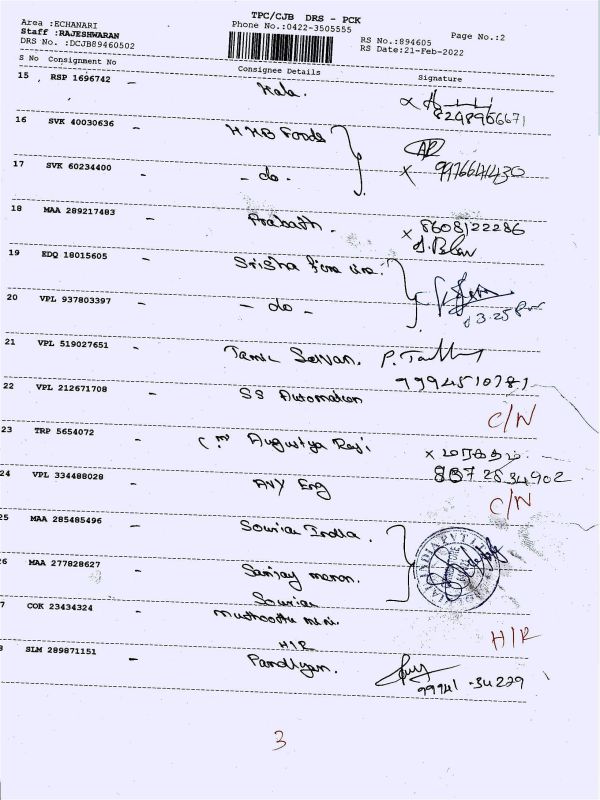 TPC/CJB DRS - PCK
Area :ECHANARI
Phone No.:0422-3505555
Staff :RAJESHWARAN
RS No.:894605
Page No.:2
DRS No. :DCJB89460502
RS Date:21-Feb-2022
S No Consignment No Consignee Details Signature
15 , RSP 1696742 - Kala.
8248966671
16 SVK 40030636 - H M B Foods
17 SVK 60234400 - - do - x 9976644430
18 MAA 289217483 - Prabath. x 8608122286
19 EDQ 18015605 - Srisha
20 VPL 937803397 - - do - 3.25
21 VPL 519027651 - Tamil Selvan.
9994510781
22 VPL 212671708 - SS Automation C/N
23 TRP 5654072 - Augustya x மரகதம்
8372534902
24 VPL 334488028 - ANY Eng C/N
25 MAA 285485496 - Souriau India.
26 MAA 277828627 - Sanjay menon.
Souriau
7 COK 23434324 - Muthoottu mini. H/R
H/R
8 SLM 289871151 - Pandiyan.
99941-34229
3